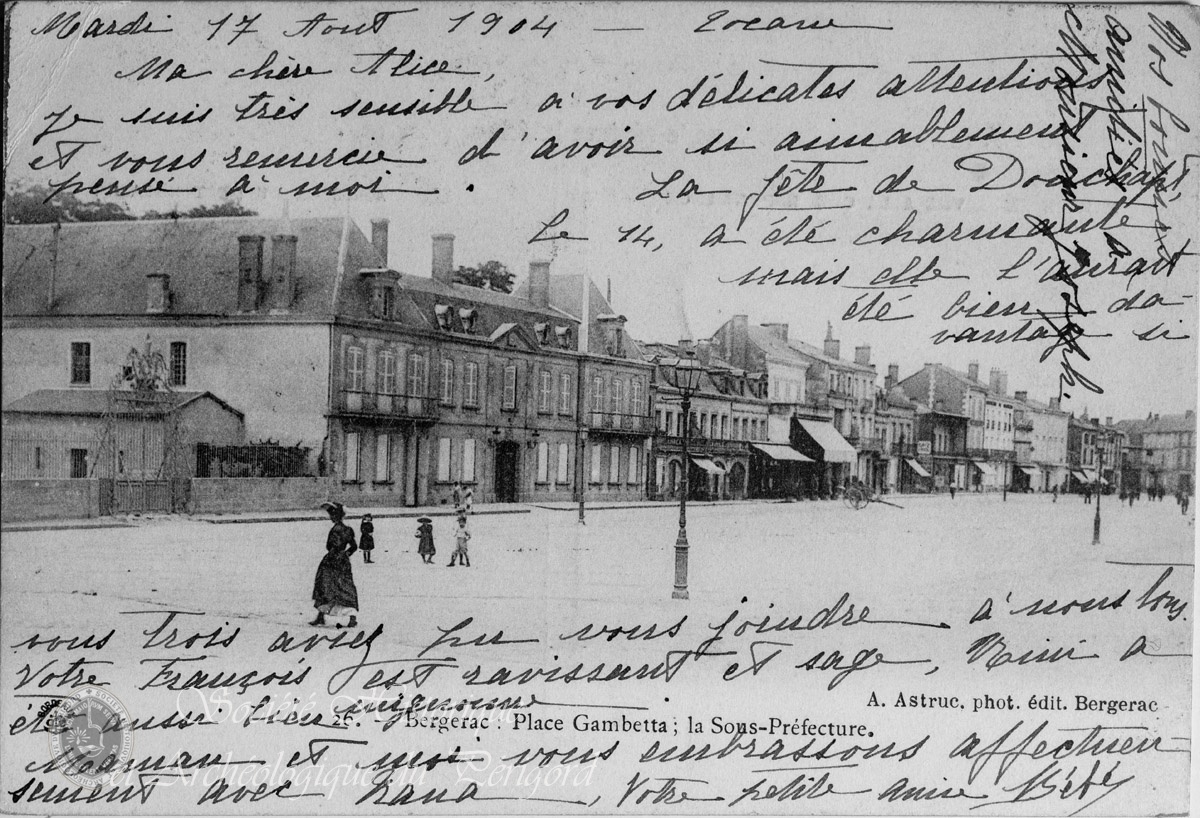 Mardi 17 Aout 1904 —
Ma chère Alice,
Je suis très sensible à vos délicates attentions
et vous remercie d'avoir si aimablement
pensé à moi. La fête de Douchapt,
le 14, a été charmante
mais elle l'aurait
été bien da-
vantage si
vous trois aviez pu vous joindre à nous tous.
Votre François est ravissant et sage, Mimi a
été aussi bien mignonne
Maman et moi vous embrassons affectueu-
sement avec Nana, Votre petite amie Bébé
Nos bonnes
amitiés à
Monsieur Joseph.
A. Astruc, phot. édit. Bergerac
26. - Bergerac : Place Gambetta ; la Sous-Préfecture.
Société Historique
et Archéologique du Périgord